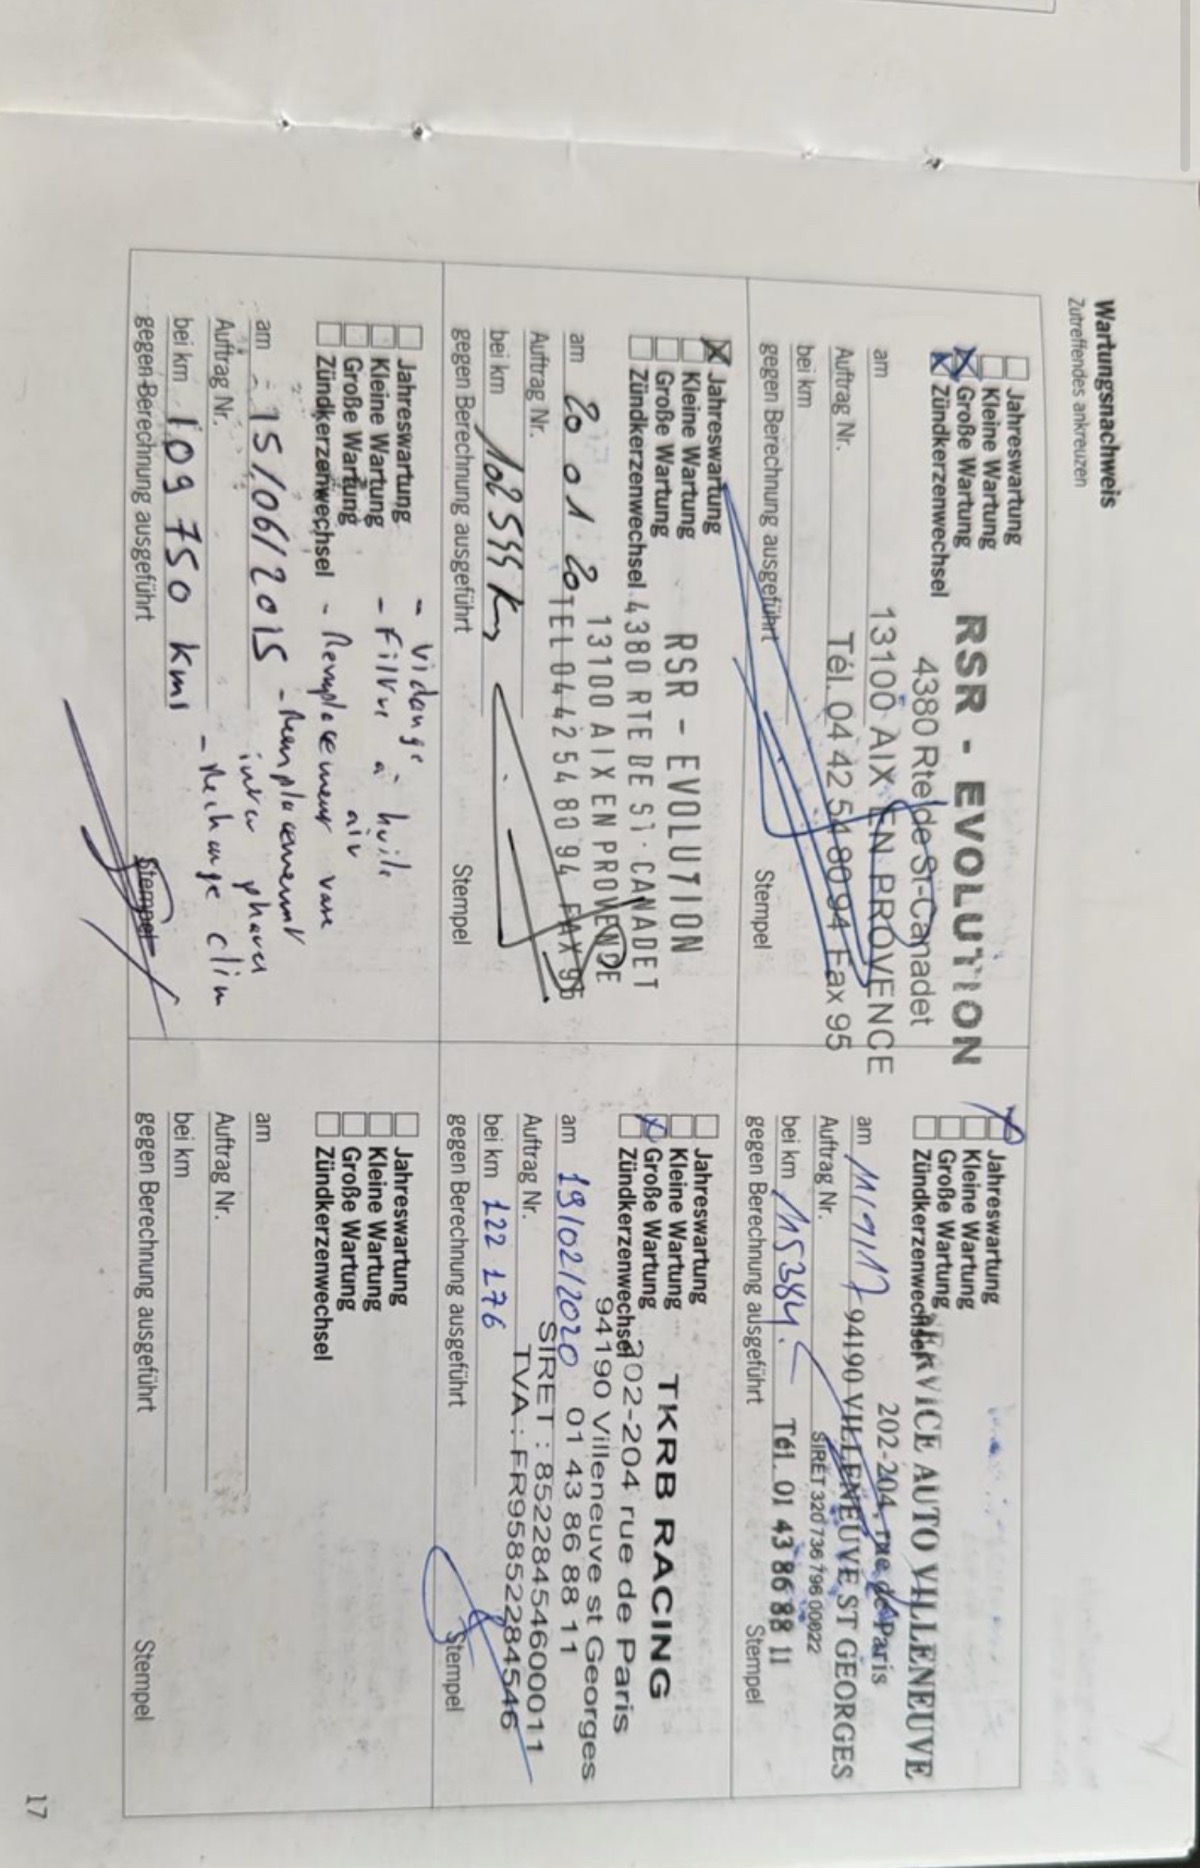 Wartungsnachweis
Zutreffendes ankreuzen
Jahreswartung
Kleine Wartung
Große Wartung
Zündkerzenwechsel
RSR - EVOLUTION
4380 Rte de St-Canadet
13100 AIX EN PROVENCE
Tél. 04 42 54 80 94 Fax 95
am
Auftrag Nr.
bei km
gegen Berechnung ausgeführt
Stempel
Jahreswartung
Kleine Wartung
Große Wartung
Zündkerzenwechsel
RSR - EVOLUTION
4380 RTE DE ST-CANADET
13100 AIX EN PROVENCE
TEL 0442548094 FAX 95
am 20 01 20
Auftrag Nr.
bei km
gegen Berechnung ausgeführt
Stempel
Jahreswartung
Kleine Wartung
Große Wartung
Zündkerzenwechsel
- Vidange
- Filtre à huile
air
- Remplacement
- Remplacement
- Recharge clim
am 15/06/2015
Auftrag Nr.
bei km 109 750 kms
gegen Berechnung ausgeführt
Stempel
Jahreswartung
Kleine Wartung
Große Wartung
Zündkerzenwechsel
SERVICE AUTO VILLENEUVE
202-204, rue de Paris
94190 VILLENEUVE ST GEORGES
SIRET 320 736 796 00022
Tél. 01 43 86 88 11
am 11/9/17
Auftrag Nr.
bei km 115384.
gegen Berechnung ausgeführt
Stempel
Jahreswartung
Kleine Wartung
Große Wartung
Zündkerzenwechsel
TKRB RACING
202-204 rue de Paris
94190 Villeneuve st Georges
01 43 86 88 11
SIRET : 85228454600011
TVA : FR95852284546
am 19/02/2020
Auftrag Nr.
bei km 122 176
gegen Berechnung ausgeführt
Stempel
Jahreswartung
Kleine Wartung
Große Wartung
Zündkerzenwechsel
am
Auftrag Nr.
bei km
gegen Berechnung ausgeführt
Stempel
17